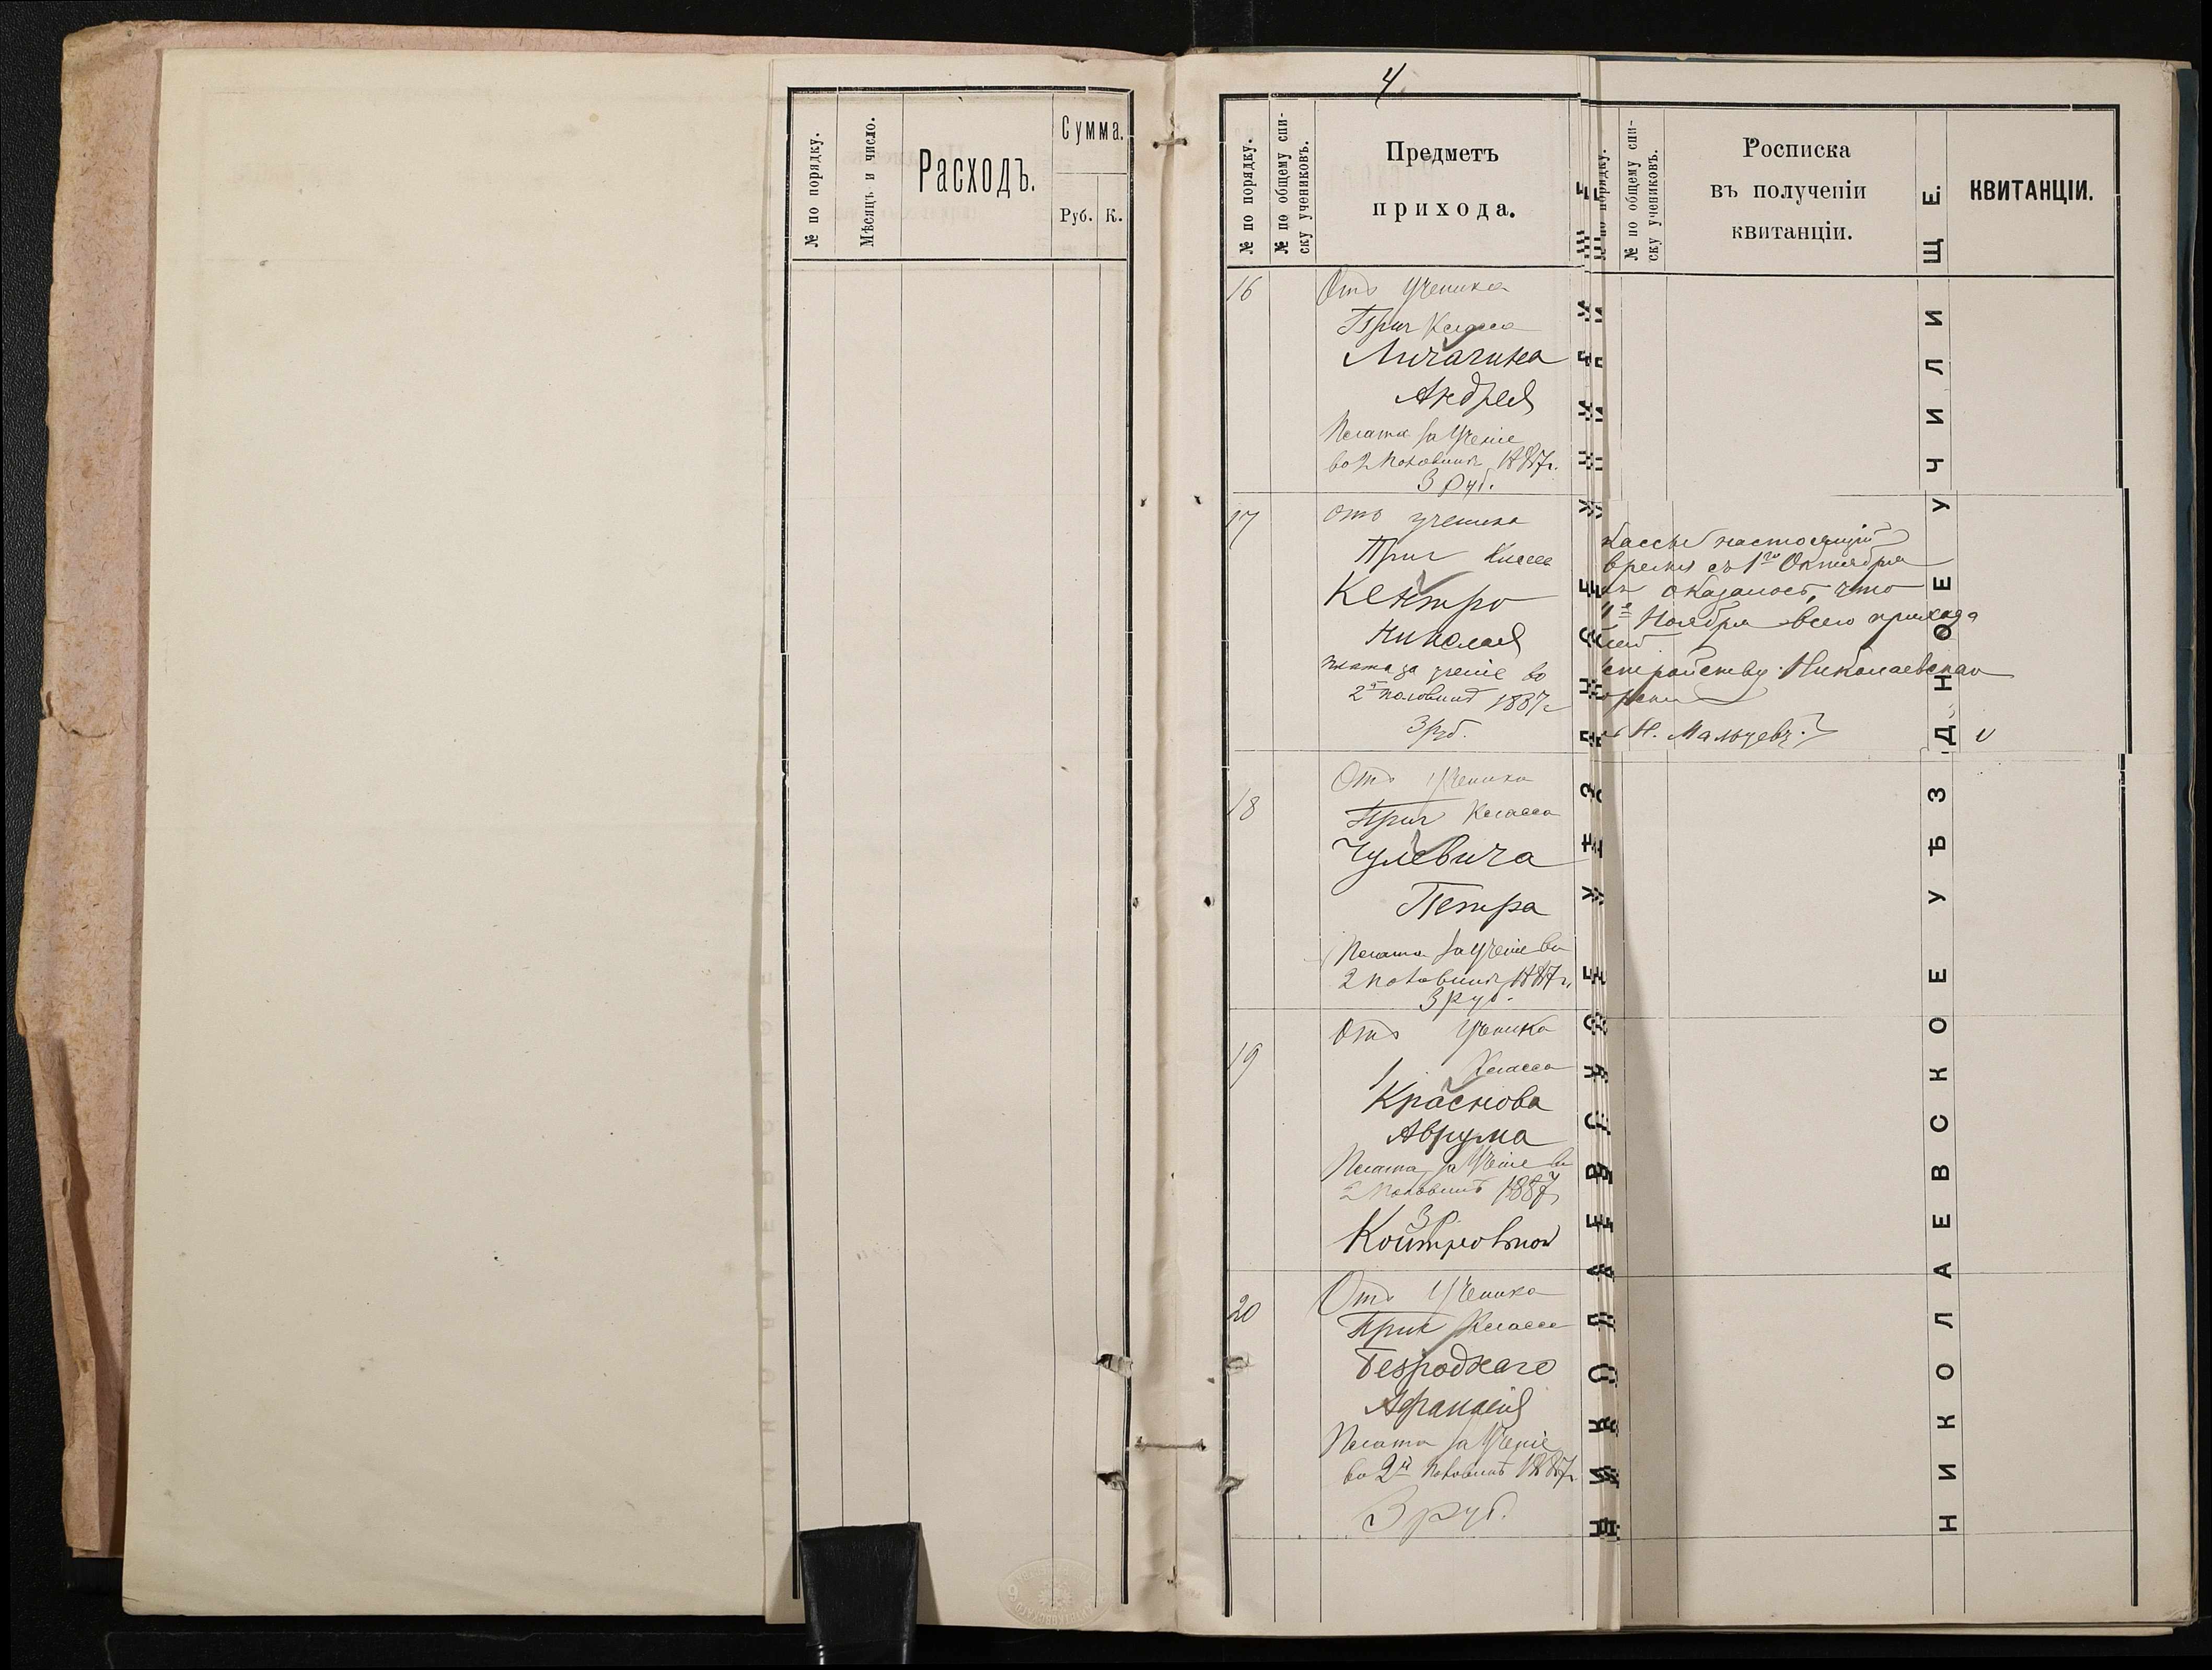 № по порядку.
Мѣсяцъ и число.
Расходъ.
Сумма.
Руб. К.
4
№ по порядку.
№ по общему спи-
ску учениковъ.
Предметъ
прихода.
16
Отъ ученика
Приг Класса
Личагина
Андрея
Плата за ученіе
во 2 половинѣ 1887 г.
3 руб.
17
Отъ ученика
Приг Класса
Кентро
Николая
плата за ученіе во
2й половинѣ 1887 г
3 руб.
18
Отъ ученика
Приг Класса
Чулевича
Петра
Плата за ученіе во
2 половинѣ 1887 г.
3 руб.
19
Отъ ученика
1 Класса
Краснова
Аврума
Плата за ученіе во
2 половинѣ 1887
3 р
20
Отъ ученика
Приг Класса
Безроднаго
Афанасія
Плата за ученіе
во 2й половинѣ 1887 г.
3 руб.
№ по порядку.
№ по общему спи-
ску учениковъ.
Росписка
въ полученіи
квитанціи.
КВИТАНЦІИ.
кассы настоящій
время съ 1го Октября
оказалось, что
Ноября всего прихода
Николаевскаго
Н. Мальцевъ.
НИКОЛАЕВСКОЕ УѢЗДНОЕ УЧИЛИЩЕ.